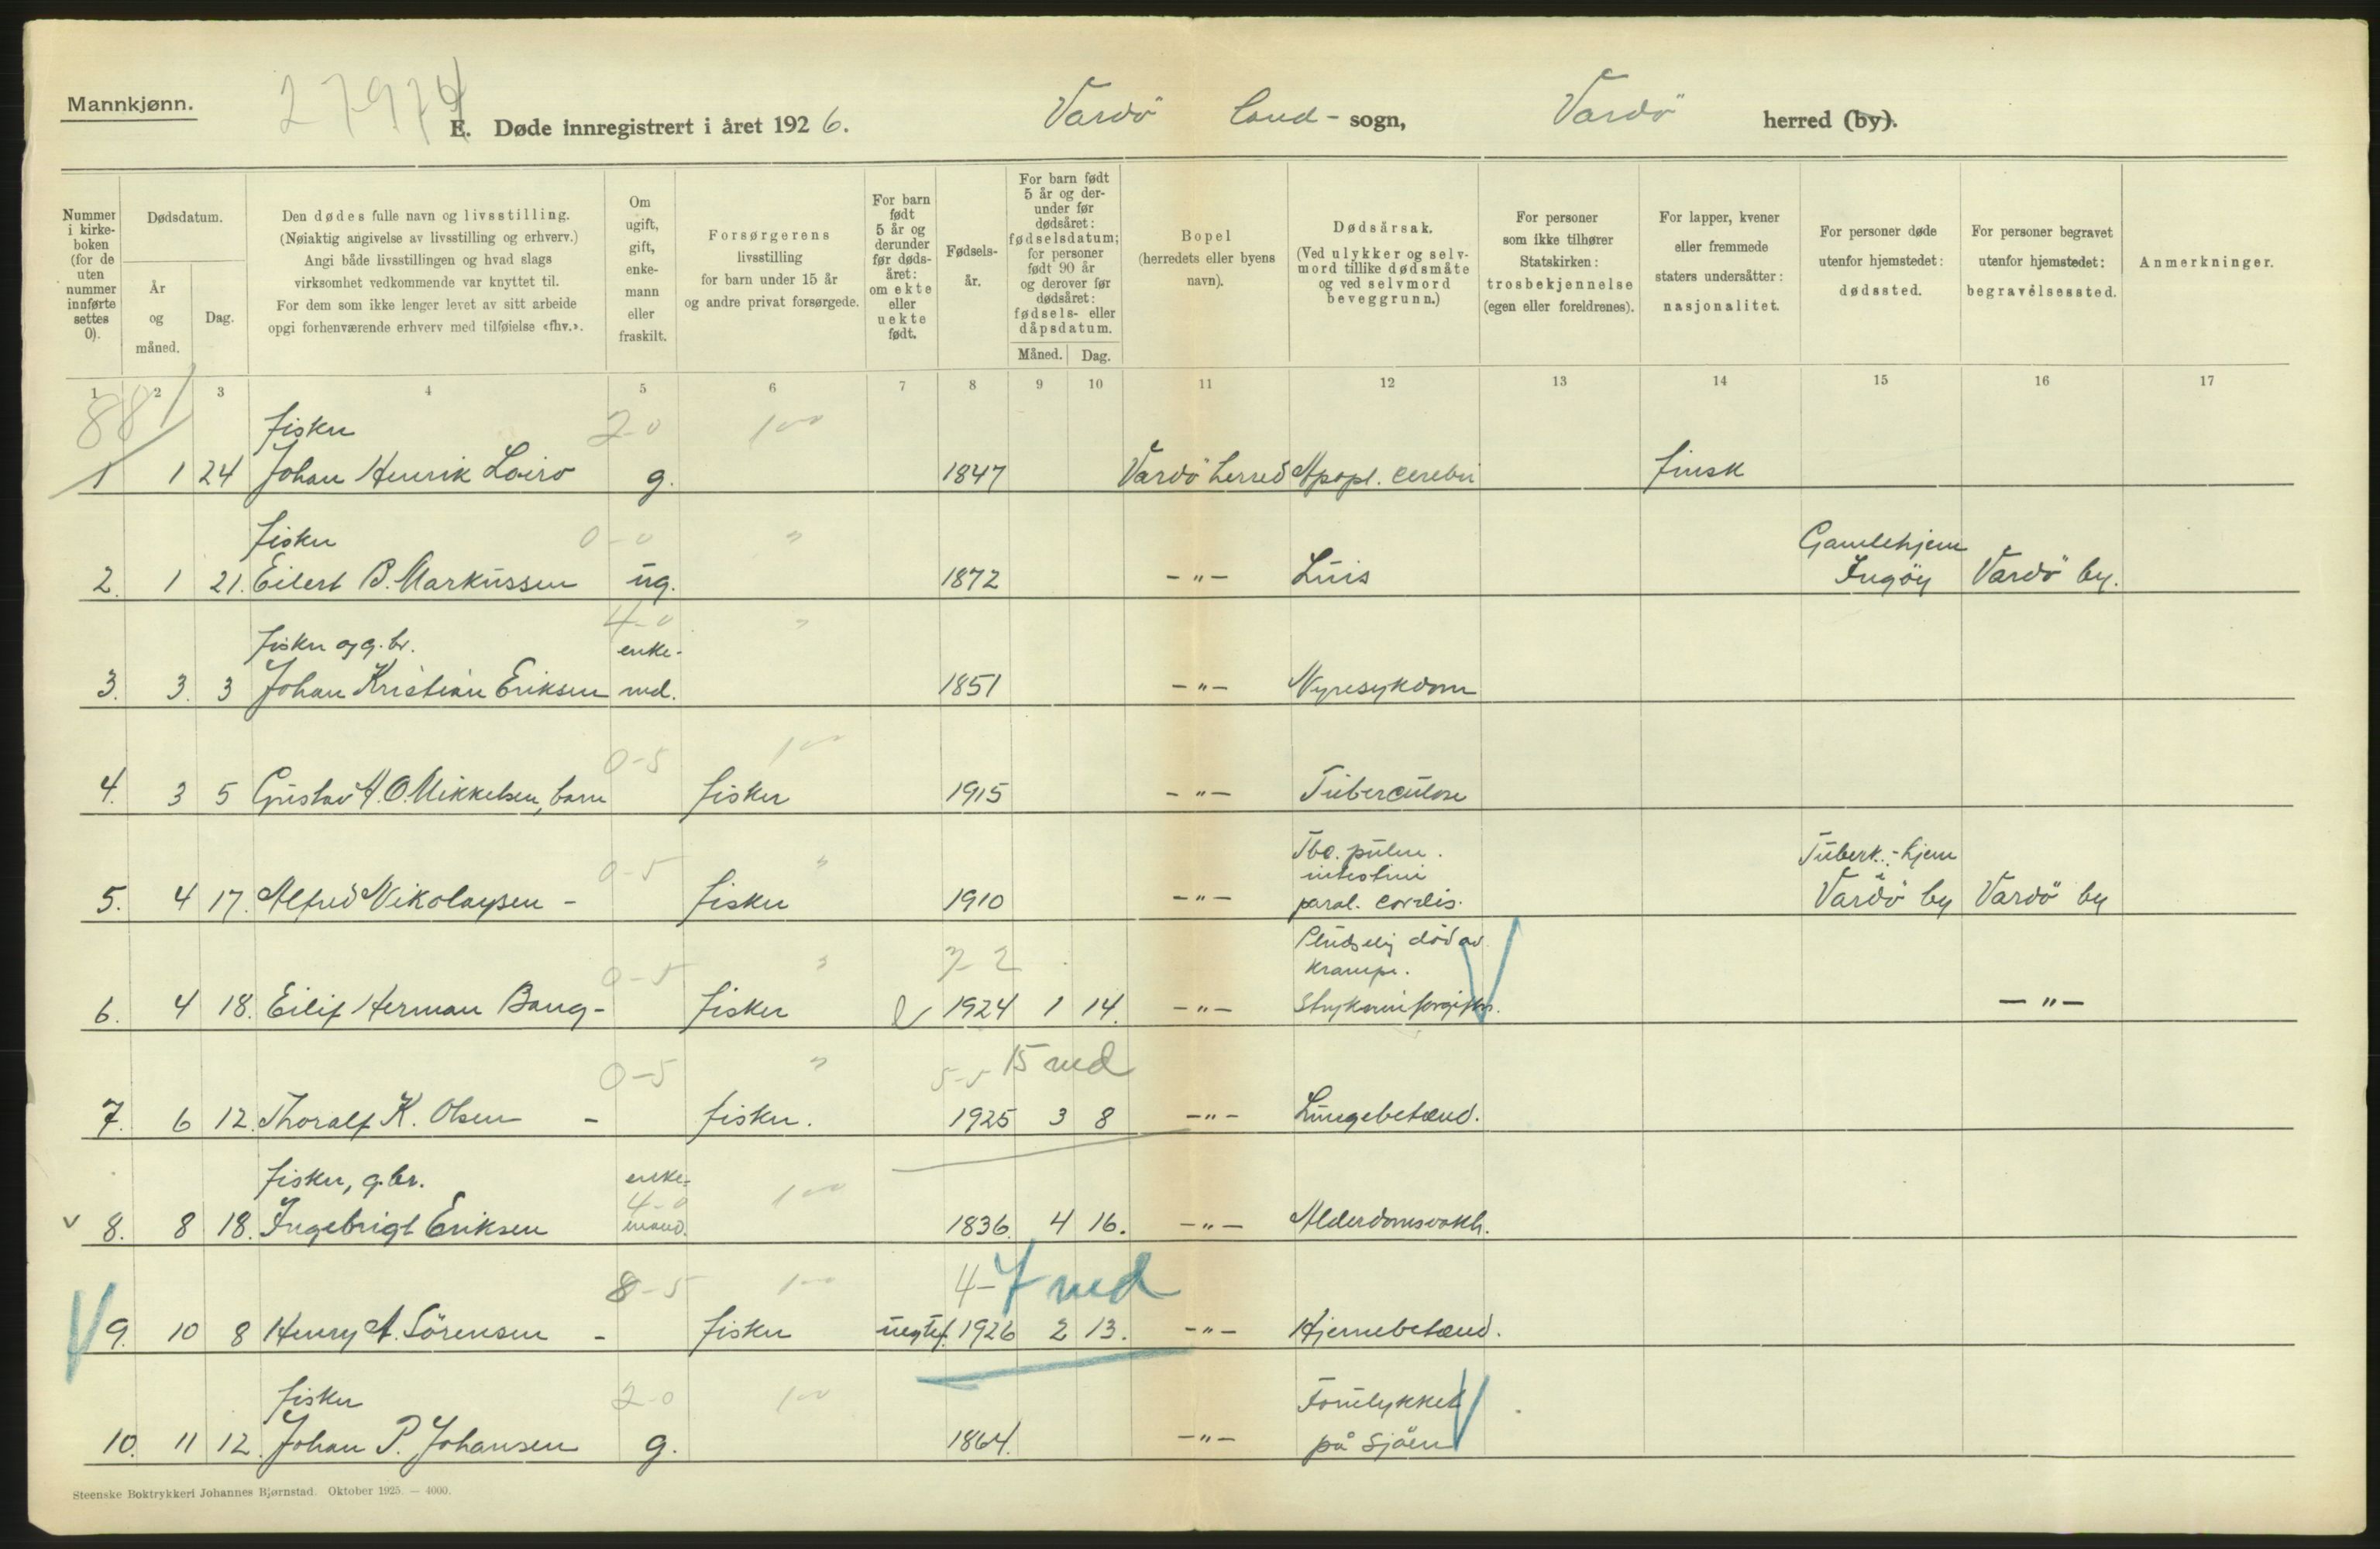 Mannkjønn.
27974
E. Døde innregistrert i året 1926. Vardö land - sogn, Vardö herred (by).
Nummer i kirke-boken (for de uten nummer innførte settes 0).
Dødsdatum.
År og måned.
Dag.
Den dødes fulle navn og livsstilling.
(Nøiaktig angivelse av livsstilling og erhverv.)
Angi både livsstillingen og hvad slags
virksomhet vedkommende var knyttet til.
For dem som ikke lenger levet av sitt arbeide
opgi forhenværende erhverv med tilføielse «fhv.».
Om ugift, gift, enke-mann eller fraskilt.
Forsørgerens
livsstilling
for barn under 15 år
og andre privat forsørgede.
For barn født 5 år og derunder før døds-året: om ekte eller uekte født.
Fødsels-år.
For barn født 5 år og der-under før dødsåret: fødselsdatum; for personer født 90 år og derover før dødsåret: fødsels- eller dåpsdatum.
Måned. Dag.
Bopel
(herredets eller byens
navn).
Dødsårsak.
(Ved ulykker og selv-
mord tillike dødsmåte
og ved selvmord
beveggrunn.)
For personer
som ikke tilhører
Statskirken:
trosbekjennelse
(egen eller foreldrenes).
For lapper, kvener
eller fremmede
staters undersåtter:
nasjonalitet.
For personer døde
utenfor hjemstedet:
dødssted.
For personer begravet
utenfor hjemstedet:
begravelsessted.
Anmerkninger.
1 2 3 4 5 6 7 8 9 10 11 12 13 14 15 16 17
881
fisker 2-0 100
1 1 24 Johan Henrik Loiro g. 1847 Vardö herred Apopl. cerebri finsk
fisker 0-0 " Gamlehjem
2. 1 21. Eilert B. Markussen ug. 1872 -"- Luis Ingöy Vardö by.
4-0 "
fisker og g.br. enke-
3. 3. 3 Johan Kristian Eriksen md. 1851 -"- Nyresykdom
0-5 100
4. 3 5 Gustav H. O. Mikkelsen, barn fisker 1915 -"- Tuberculose
Tbc. pulm. Tuberk.-hjem
0-5 " intestini i
5. 4 17. Alfred Nikolaysen - fisker 1910 -"- paral. cordis. Vardö by Vardö by
Pludselig död av
0-5 " 7-2 krampe.
6. 4 18. Eilif Herman Bang - fisker e 1924 1 14. -"- Strykninforgiftn. -"-
0-5 " 5-5 15 md
7. 6 12. Thoralf K. Olsen - fisker. 1925 3 8 -"- Lungebetænd.
fisker, g.br. enke-
4-0 100
v 8. 8 18. Ingebrigt Eriksen mand. 1836. 4 16. -"- Alderdomssvakh.
8-5 100 4- 7 md
9. 10 8 Henry A. Sörensen - fisker uegtef. 1926 2 13. -"- Hjernebetænd.
fisker 2-0 100 Forulykket
10. 11 12. Johan P. Johansen g. 1864. -"- på sjöen
Steenske Boktrykkeri Johannes Bjørnstad. Oktober 1925. — 4000.